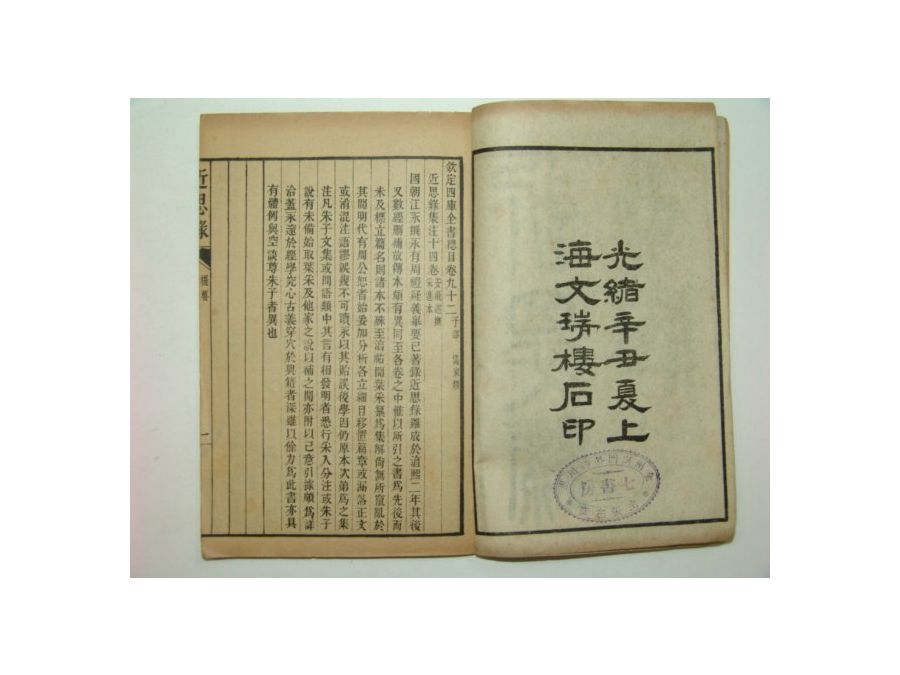 光緒辛丑夏上
海文瑞樓石印
七書房
欽定四庫全書總目卷九十二子部 儒家類
近思錄集注十四卷安徽巡撫采進本
國朝江永撰永有周禮疑義舉要已著錄近思錄雖成於淳熙二年其後
又數經刪補故傳本頗有異同至各卷之中惟以所引之書為先後而
未及標立篇名則諸本不殊至淳祐間葉采纂為集解尚無所竄亂於
其間明代有周公恕者始妄加分析各立細目移置篇章或漏落正文
或淆混注語謬誤幾不可讀永以其貽誤後學因仍原本次第為之集
注凡朱子文集或問語類中其言有相發明者悉行采入分注或朱子
說有未備始取葉采及他家之說以補之間亦附以己意引據頗為詳
洽蓋永邃於經學究心古義穿穴於典籍者深雖以餘力為此書亦具
有體例與空談尊朱子者異也
近思錄
提要